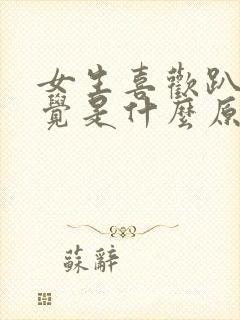 女生喜歡趴
覺是什麼原
蘇辭